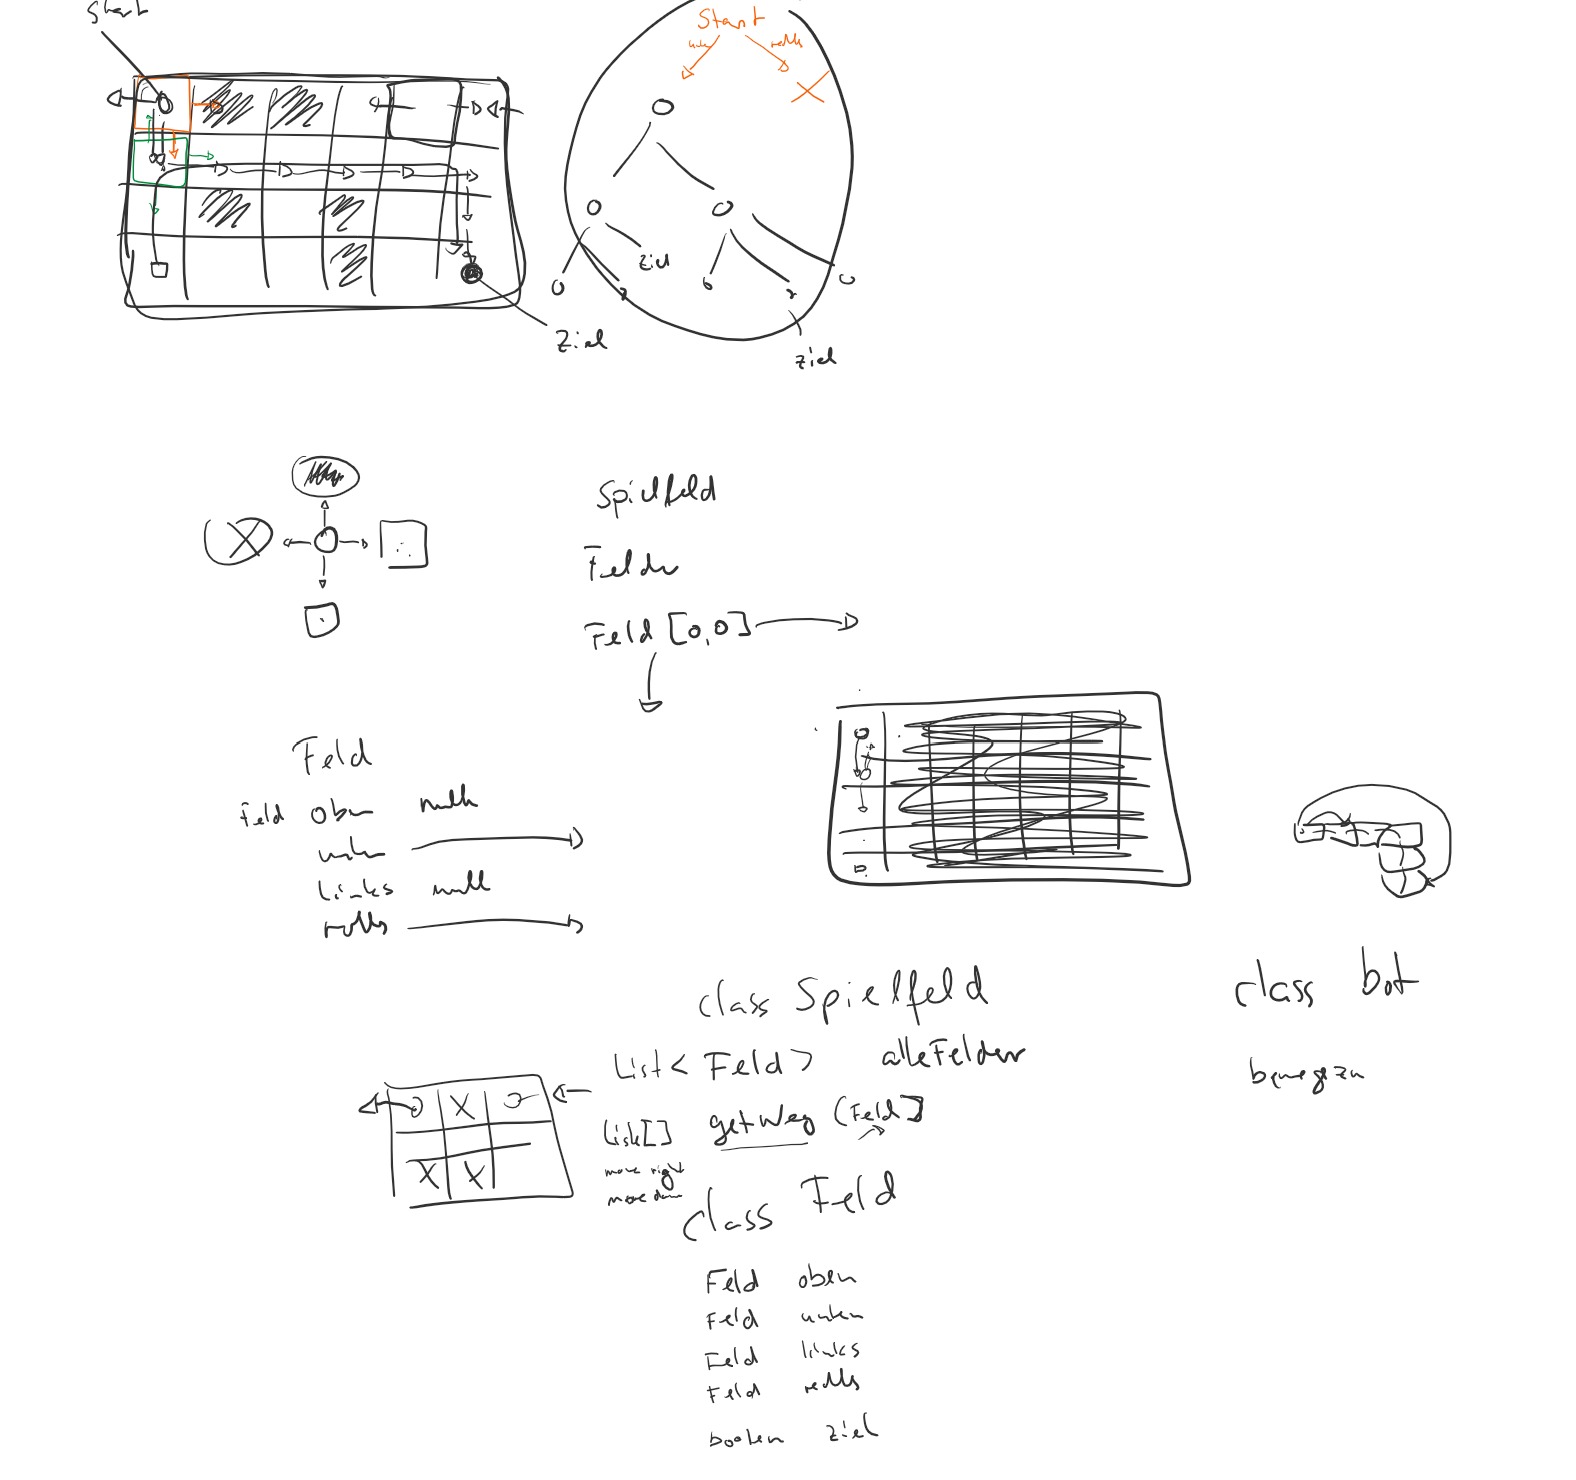 Start
Start
unten
rechts
Ziel
Ziel
Ziel
Spielfeld
Felder
Feld [0,0]
Feld
Feld oben null
unten
links null
rechts
class Spielfeld
List< Feld> alleFelder
List[] getWeg (Feld]
move right
move down
class Feld
Feld oben
Feld unten
Feld links
Feld rechts
boolean ziel
class bot
bewegen